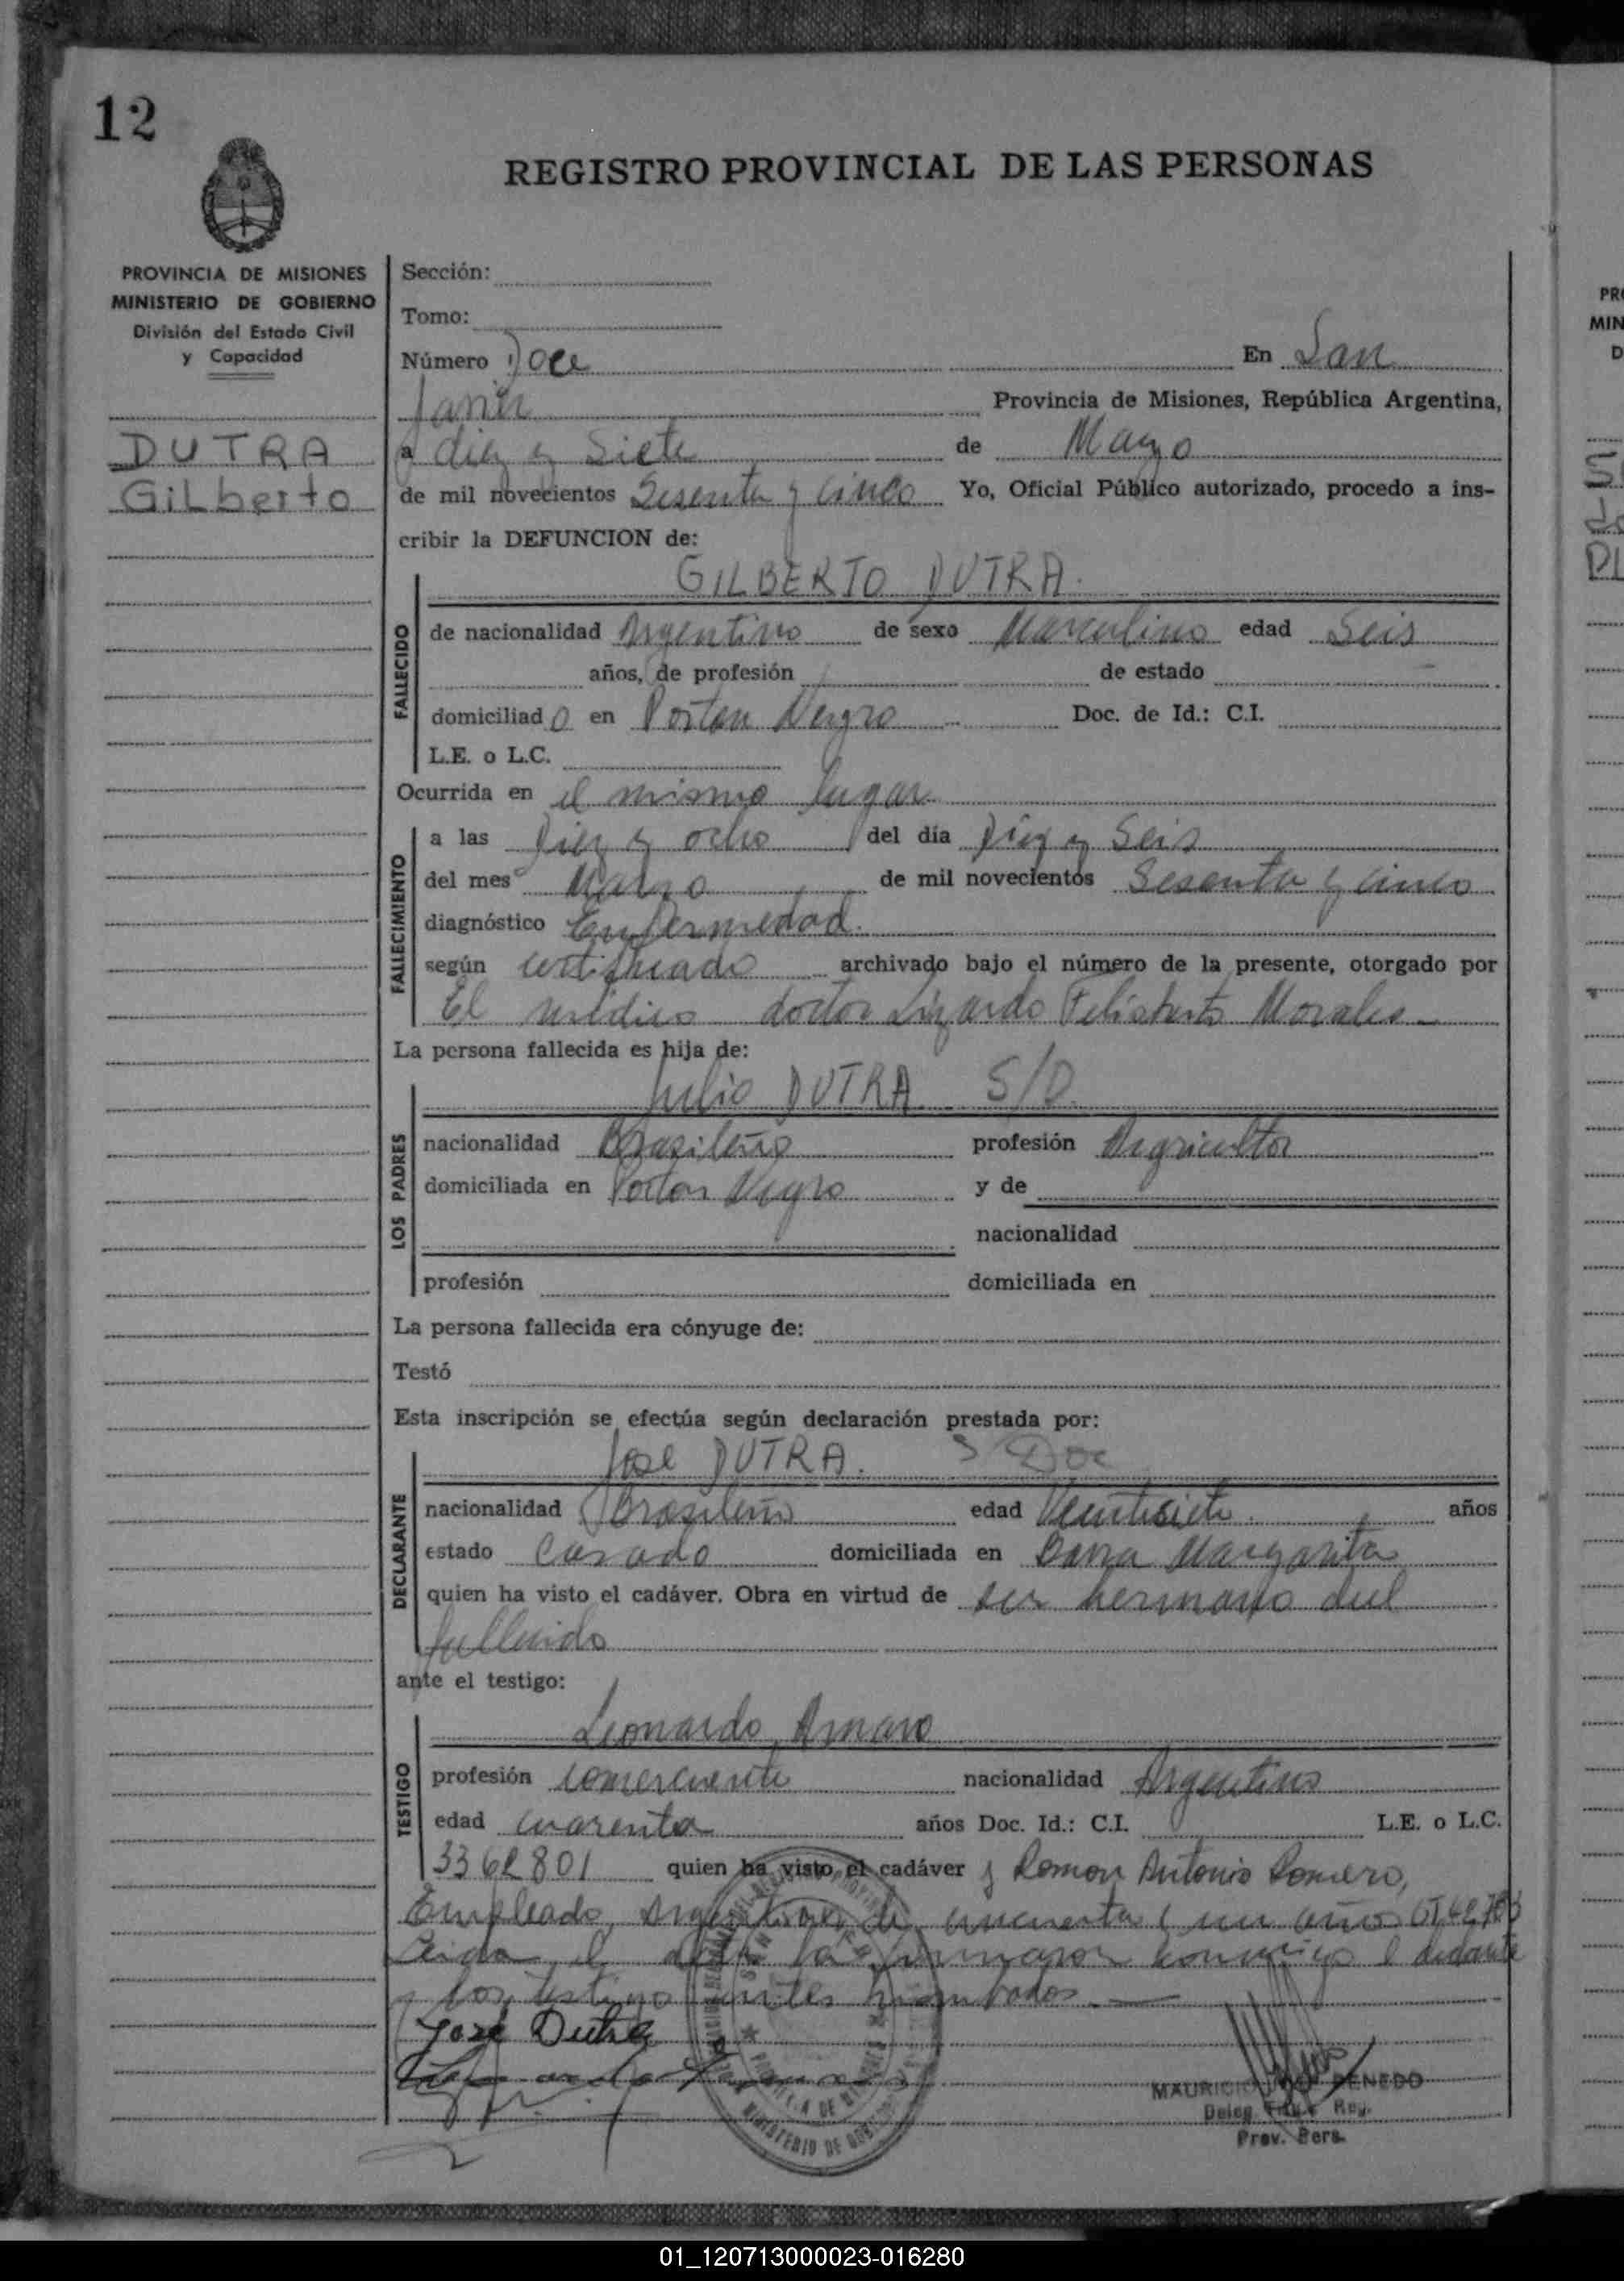 12
REGISTRO PROVINCIAL DE LAS PERSONAS
PROVINCIA DE MISIONES
MINISTERIO DE GOBIERNO
División del Estado Civil
y Capacidad
DUTRA
GiLberto
Sección:
Tomo:
Número Doce En San
Javier Provincia de Misiones, República Argentina,
a diez y Siete de Marzo
de mil novecientos Sesenta y cinco Yo, Oficial Público autorizado, procedo a ins-
cribir la DEFUNCION de:
GILBERTO DUTRA.
FALLECIDO
de nacionalidad Argentino de sexo Masculino edad Seis
años, de profesión de estado
domiciliado en Porton Negro Doc. de Id.: C.I.
L.E. o L.C.
Ocurrida en el mismo lugar
FALLECIMIENTO
a las Diez y ocho del día Diez y Seis
del mes Marzo de mil novecientos Sesenta y cinco
diagnóstico Enfermedad.
según certificado archivado bajo el número de la presente, otorgado por
El médico doctor Lizardo Felisberto Morales
La persona fallecida es hija de:
LOS PADRES
Julio DUTRA S/D.
nacionalidad Brazileño profesión Agricultor
domiciliada en Porton Negro y de
nacionalidad
profesión domiciliada en
La persona fallecida era cónyuge de:
Testó
Esta inscripción se efectúa según declaración prestada por:
DECLARANTE
José DUTRA. S Doc
nacionalidad Brasileño edad Veintisiete años
estado Casado domiciliada en Barra Margarita
quien ha visto el cadáver. Obra en virtud de ser hermano del
fallecido
ante el testigo:
TESTIGO
Leonardo Amaro
profesión comerciente nacionalidad Argentino
edad cuarenta años Doc. Id.: C.I. L.E. o L.C.
3362801 quien ha visto el cadáver y Ramon Antonio Romero,
Empleado, Argentino, de cincuenta y un años
Leida el acta la firmaron conmigo el declarante
y los testigo antes nombrados
José Dutra
MAURICIO PENEDO
Deleg. Reg.
Prov. Pers.
PROVINCIA DE MISIONES
MINISTERIO DE GOBIERNO
01_120713000023-016280